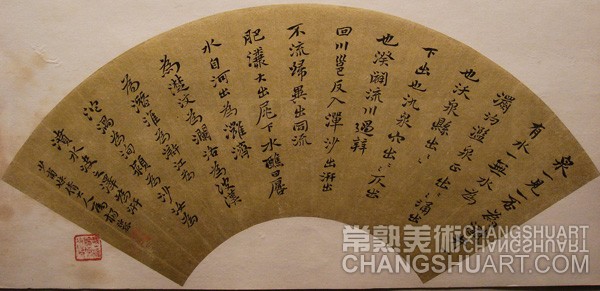 泉一見一否為
有水一無水為
瀱汋濫泉正出〻涌出
也沃泉縣出〻
下出也氿泉穴出〻仄出
也湀闢流川過辨
回川邕反入潬沙出汧出
不流歸異出同流
肥瀵大出尾下水醮曰厬
水自河出為灉濟
為濋汶為瀾洛為波漢
為潛淮為滸江為
沱濄為洵潁為沙汝為
濆水決之澤為汧
大人
常熟美術 CHANGSHUART.COM
CHANGSHUART.COM